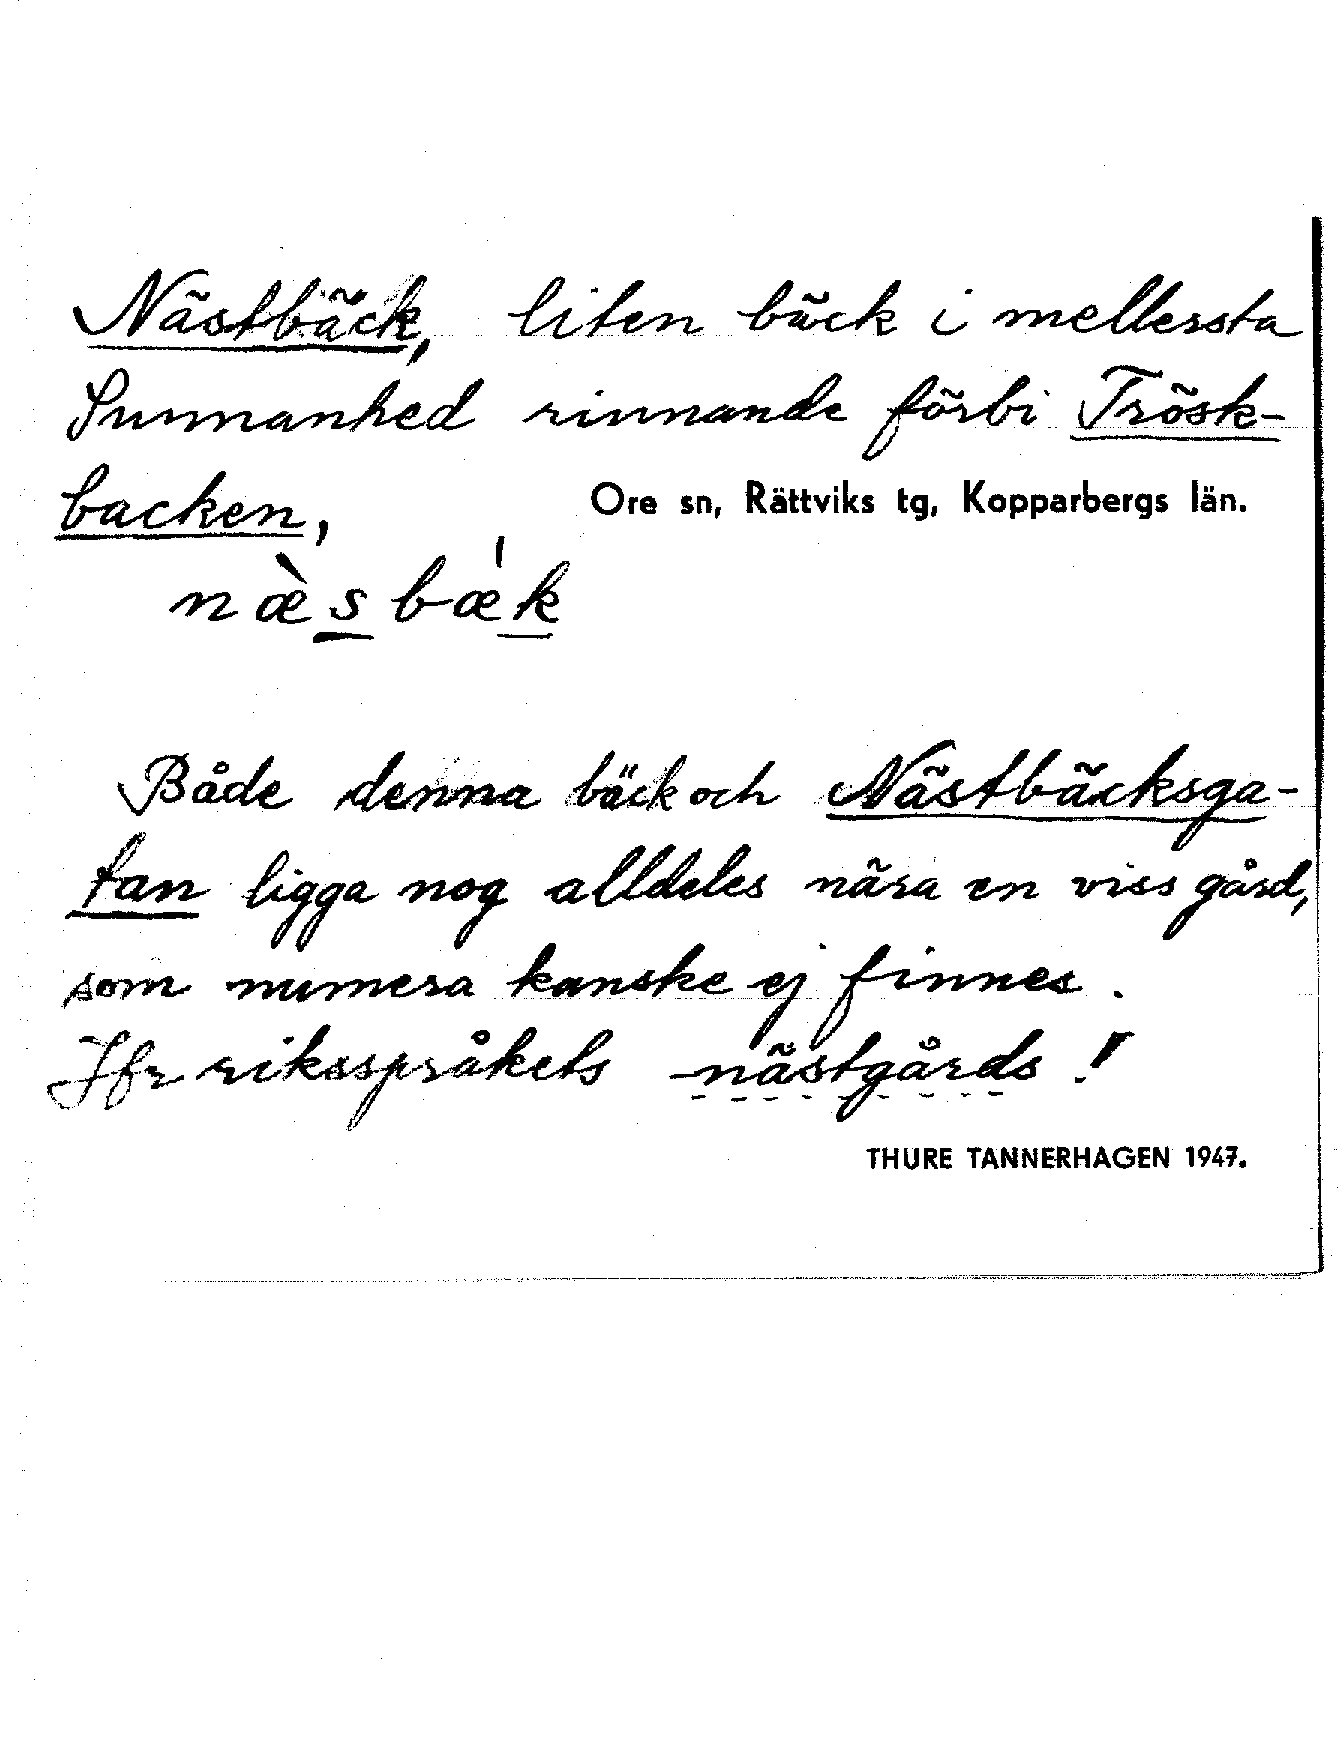 Nästbäck, liten bäck i mellersta
Sunnanhed rinnande förbi Trösk-
backen,
Ore sn, Rättviks tg, Kopparbergs län.
næ̀sbæ̍k
Både denna bäck och Nästbäcksga-
tan ligga nog alldeles nära en viss gård,
som numera kanske ej finnes.
Jfr riksspråkets nästgårds!
THURE TANNERHAGEN 1947.